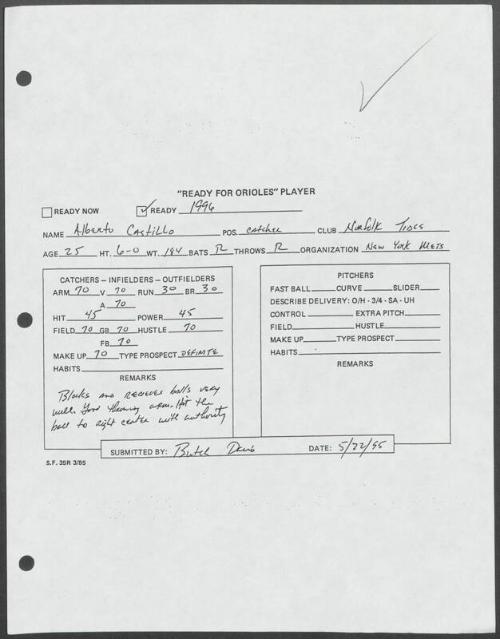 "READY FOR ORIOLES" PLAYER
READY NOW READY 1996
NAME Alberto Castillo POS. catcher CLUB Norfolk Tides
AGE 25 HT. 6-0 WT. 184 BATS R THROWS R ORGANIZATION New York Mets
CATCHERS - INFIELDERS - OUTFIELDERS
ARM 70 V 70 RUN 30 BR 30
A 70
HIT 45 POWER 45
FIELD 70 GB 70 HUSTLE 70
FB 70
MAKE UP 70 TYPE PROSPECT DEFINITE
HABITS
REMARKS
Blocks and receives balls very
well. Good throwing arm. Hit the
ball to right center with authority
PITCHERS
FAST BALL CURVE SLIDER
DESCRIBE DELIVERY: O/H - 3/4 - SA - UH
CONTROL EXTRA PITCH
FIELD HUSTLE
MAKE UP TYPE PROSPECT
HABITS
REMARKS
SUBMITTED BY: Butch Davis DATE: 5/22/95
S.F. 35R 3/85